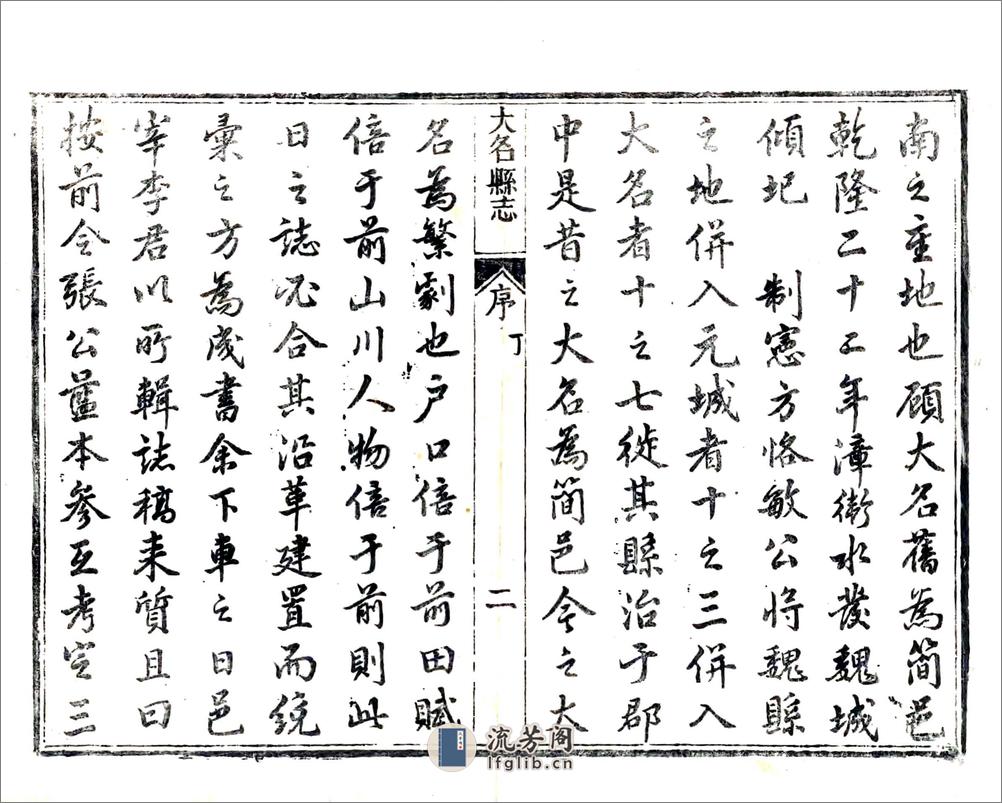 南之重地也顧大名舊為簡邑
乾隆二十二年漳衛水發魏城
傾圮　制憲方恪敏公將魏縣
之地併入元城者十之三併入
大名者十之七徙其縣治于郡
中是昔之大名為簡邑今之大
大名縣志
序
丁
二
名為繁劇也戶口倍于前田賦
倍于前山川人物倍于前則此
日之誌必合其沿革建置而統
彙之方為成書余下車之日邑
宰李君以所輯誌稿来質且曰
按前令張公藍本參互考定三
流芳阁
lfglib.cn